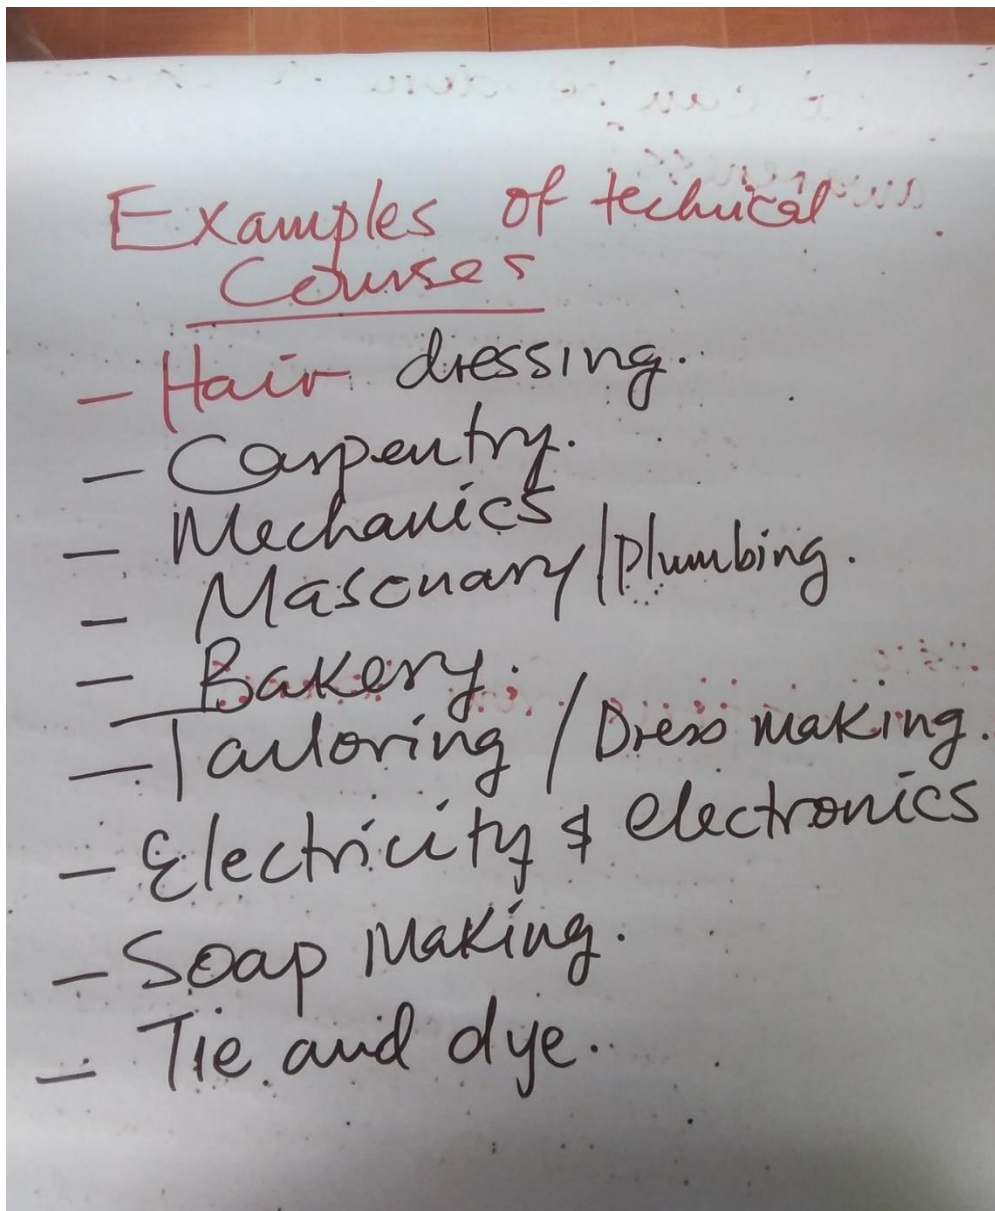 Examples of technical
Courses
- Hair dressing.
- Carpentry.
- Mechanics
- Masonary/Plumbing.
- Bakery.
- Tailoring / Dress making.
- Electricity & electronics
- Soap Making.
- Tie and dye.